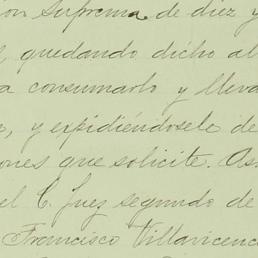 ion Suprema de diez y
, quedando dicho al
a consumarlo y lleva
, y expidiéndosele de
iones que solicite. Así
el C. Juez segundo de
Francisco Villavicenc